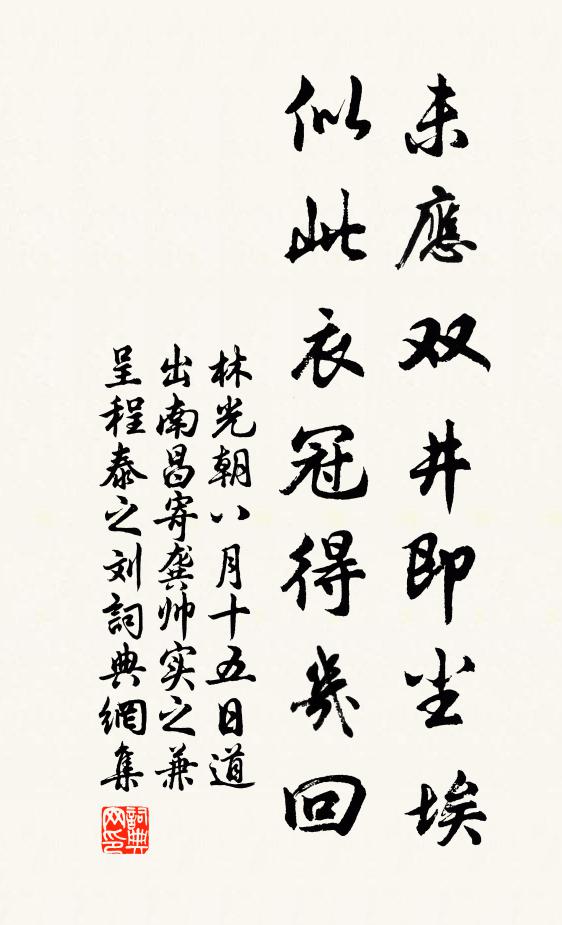 未應双井即尘埃
似此衣冠得幾回
林光朝八月十五日道
出南昌寄龚帅实之兼
呈程泰之刘詞典網集
詞典网印